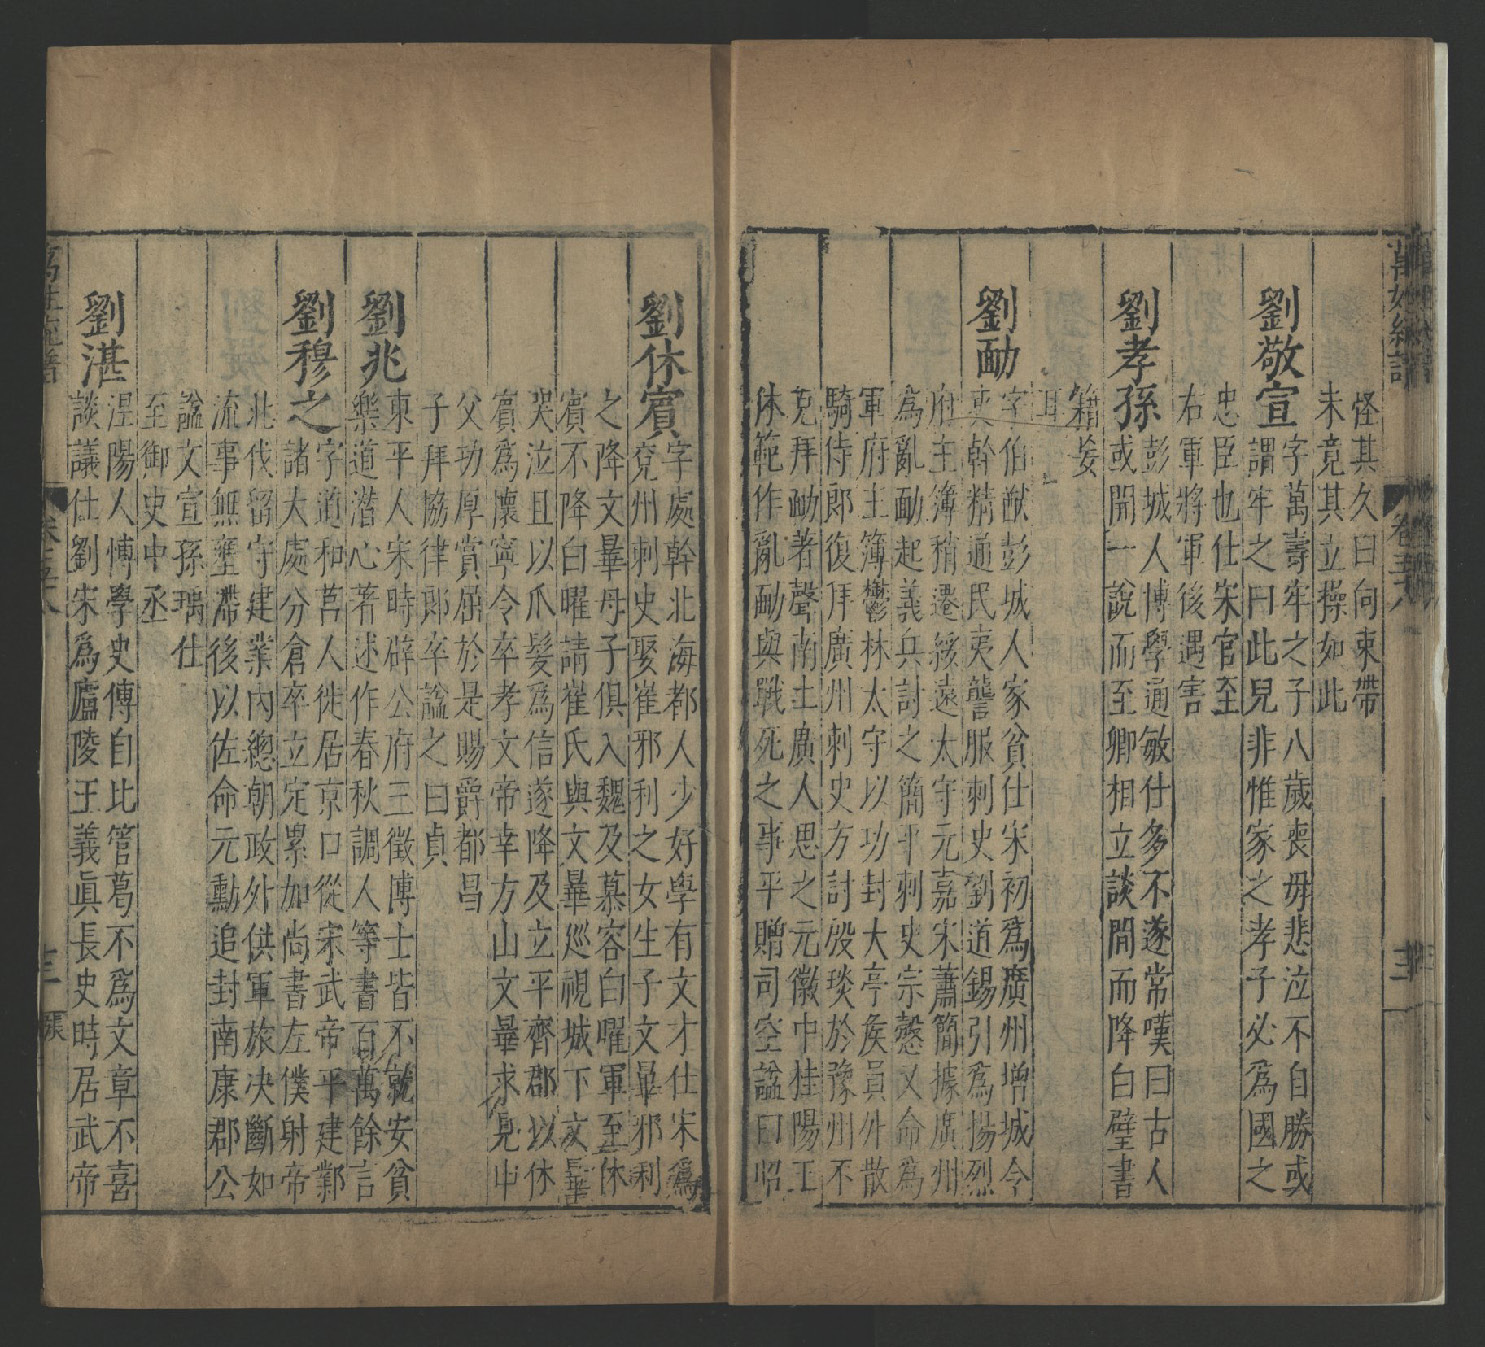 萬姓統譜
卷五十八
怪其久曰向東帶
未竟其立操如此
劉敬宣
字萬壽牢之子八歲喪母悲泣不自勝或
謂牢之曰此兒非惟家之孝子必爲國之
忠臣也仕宋官至
右軍將軍後遇害
劉孝孫
彭城人博學通敏仕多不遂常嘆曰古人
或開一說而至卿相立談間而降白璧書
籍妄
耳
劉勔
字伯猷彭城人家貧仕宋初爲廣州增城令
吏幹精通民夷讋服刺史劉道錫引爲揚烈
府主簿稍遷綏遠太守元嘉宋蕭簡據廣州
爲亂勔起義兵討之簡平刺史宗慤又命爲
軍府主簿鬱林太守以功封大亭矦員外散
騎侍郎復拜廣州刺史方討殷琰於豫州不
克拜勔著聲南土廣人思之元徽中桂陽王
休範作亂勔與戰死之事平贈司空諡曰昭
劉休賓
字處幹北海都人少好學有文才仕宋爲
兖州刺史娶崔邪利之女生子文畢邪利
之降文畢母子俱入魏及慕容白曜軍至休
賓不降白曜請崔氏與文畢廵視城下文畢
哭泣且以爪髮爲信遂降及立平齊郡以休
賓爲懷寧令卒孝文帝幸方山文畢求見申
父功厚賞屈於是賜爵都昌
子拜協律郎卒諡之曰貞
劉兆
東平人宋時辟公府三徵博士皆不就安貧
樂道潜心著述作春秋調人等書百萬餘言
劉穆之
字道和莒人徙居京口從宋武帝平建鄴
諸大處分倉卒立定累加尚書左僕射帝
北伐留守建業內總朝政外供軍旅决斷如
流事無壅滯後以佐命元勳追封南康郡公
諡文宣孫瑀仕
至御史中丞
劉湛
涅陽人博學史傳自比管葛不爲文章不喜
談議仕劉宋爲廬陵王義眞長史時居武帝